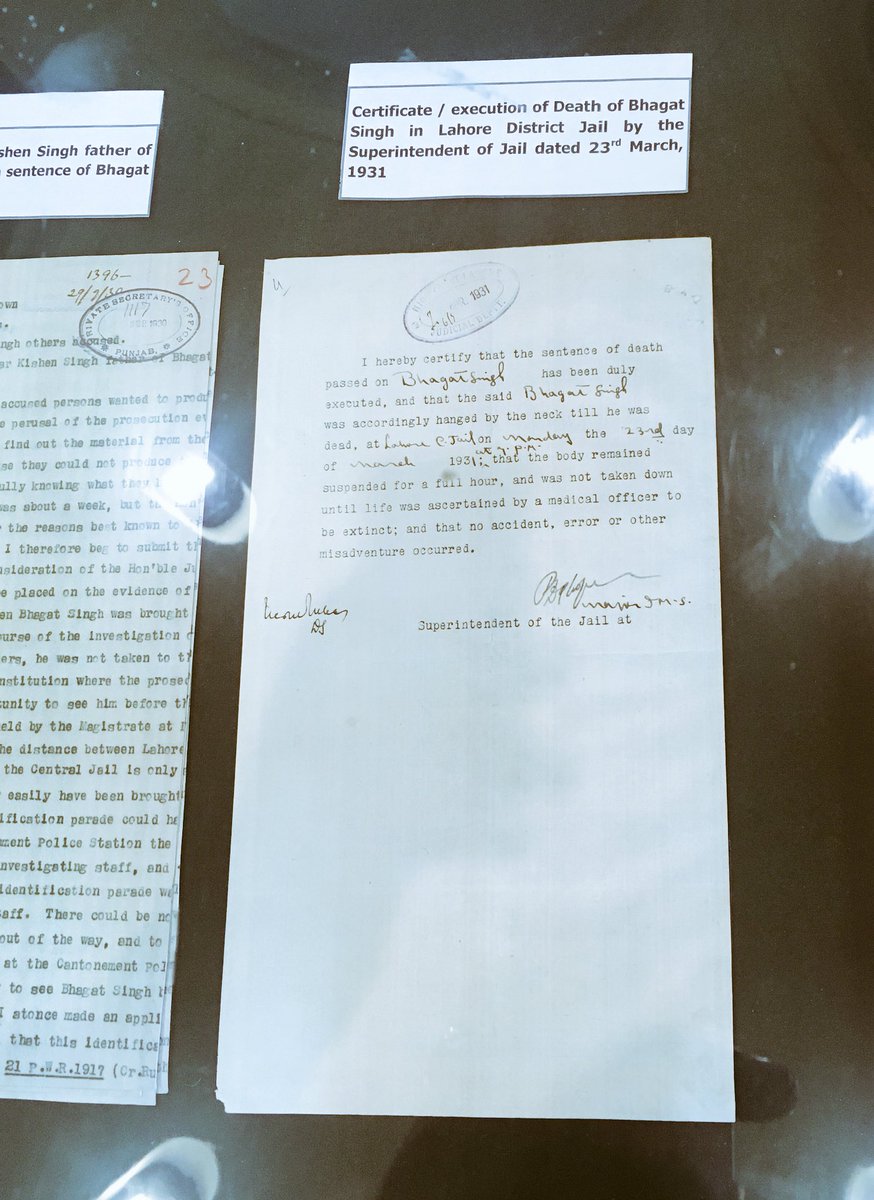 shen Singh father of
sentence of Bhagat
Certificate / execution of Death of Bhagat
Singh in Lahore District Jail by the
Superintendent of Jail dated 23rd March,
1931
1396-
29/9/30
23
PRIVATE SECRETARY'S OFFICE
1117
1930
PUNJAB.
own
ngh others accused.
ar Kishen Singh father of Bhagat
accused persons wanted to produ
e perusal of the prosecution ev
find out the material from the
se they could not produce
ully knowing what they
was about a week, but
the reasons best known to
I therefore beg to submit th
nsideration of the Hon'ble Ju
e placed on the evidence of
en Bhagat Singh was brought
ourse of the investigation
ers, he was not taken to th
nstitution where the prosec
tunity to see him before th
eld by the Magistrate at
he distance between Lahore
the Central Jail is only
easily have been brought
ification parade could ha
ment Police Station the
nvestigating staff, and
identification parade w
aff. There could be no
out of the way, and to
at the Cantonement Pol
to see Bhagat Singh
I atonce made an appli
that this identifica
21 P.W.R.1917 (Cr.Ru
1931
JUDICIAL DEPT.
I hereby certify that the sentence of death
passed on Bhagat Singh has been duly
executed, and that the said Bhagat Singh
was accordingly hanged by the neck till he was
dead, at Lahore C. Jail on Monday the 23rd day
of March 1931; at 7 p.m. that the body remained
suspended for a full hour, and was not taken down
until life was ascertained by a medical officer to
be extinct; and that no accident, error or other
misadventure occurred.
Major I.M.S.
DS
Superintendent of the Jail at